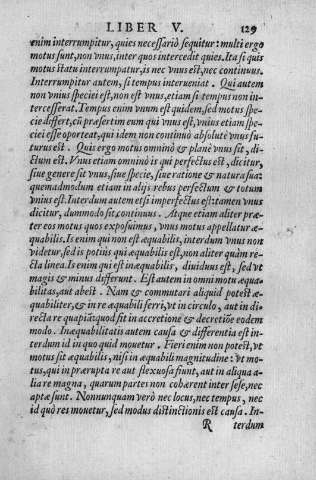 LIBER V. 129
enim interrumpitur, quies necessariò sequitur: multi ergo
motus sunt, non vnus, inter quos intercedit quies. Ita si quis
motus statu interrumpatur, is nec vnus est, nec continuus.
Interrumpitur autem, si tempus interueniat. Qui autem
non vnius speciei est, non est vnus, etiam si tempus non in-
tercesserat. Tempus enim vnum est quidem, sed motus spe-
cie differt, cū præsertim eum qui vnus est, vnius etiam spe-
ciei esse oporteat, qui idem non continuò absolutè vnus fu-
turus est. Quis ergo motus omninò & planè vnus sit, di-
ctum est. Vnus etiam omninò is qui perfectus est, dicitur,
siue genere sit vnus, siue specie, siue ratione & natura sua:
quemadmodum etiam in alijs rebus perfectum & totum
vnius est. Interdum autem etsi imperfectus est: tamen vnus
dicitur, dummodo sit continuus. Atque etiam aliter præ-
ter eos motus quos exposuimus, vnus motus appellatur æ-
quabilis. Is enim qui non est æquabilis, interdum vnus non
videtur, sed is potius qui æquabilis est, non aliter quàm re-
cta linea. Is enim qui est inæquabilis, diuiduus est, sed vt
magis & minus differunt. Est autem in omni motu æqua-
bilitas, aut abest. Nam & commutari aliquid potest æ-
quabiliter, & in re æquabili ferri, vt in circulo, aut in di-
recta re quapiā: quod sit in accretione & decretiōe eodem
modo. Inæquabilitatis autem causa & differentia est in-
terdum id in quo quid mouetur. Fieri enim non potest, vt
motus sit æquabilis, nisi in æquabili magnitudine: vt mo-
tus, qui in prærupta re aut flexuosa fiunt, aut in aliqua a-
lia re magna, quarum partes non cohærent inter sese, nec
aptæ sunt. Nonnunquam verò nec locus, nec tempus, nec
id quò res mouetur, sed modus distinctionis est causa. In-
R terdum